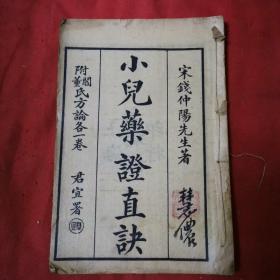 宋錢仲陽先生著
小兒藥證直訣
附閻董氏方論各一卷
君宜署